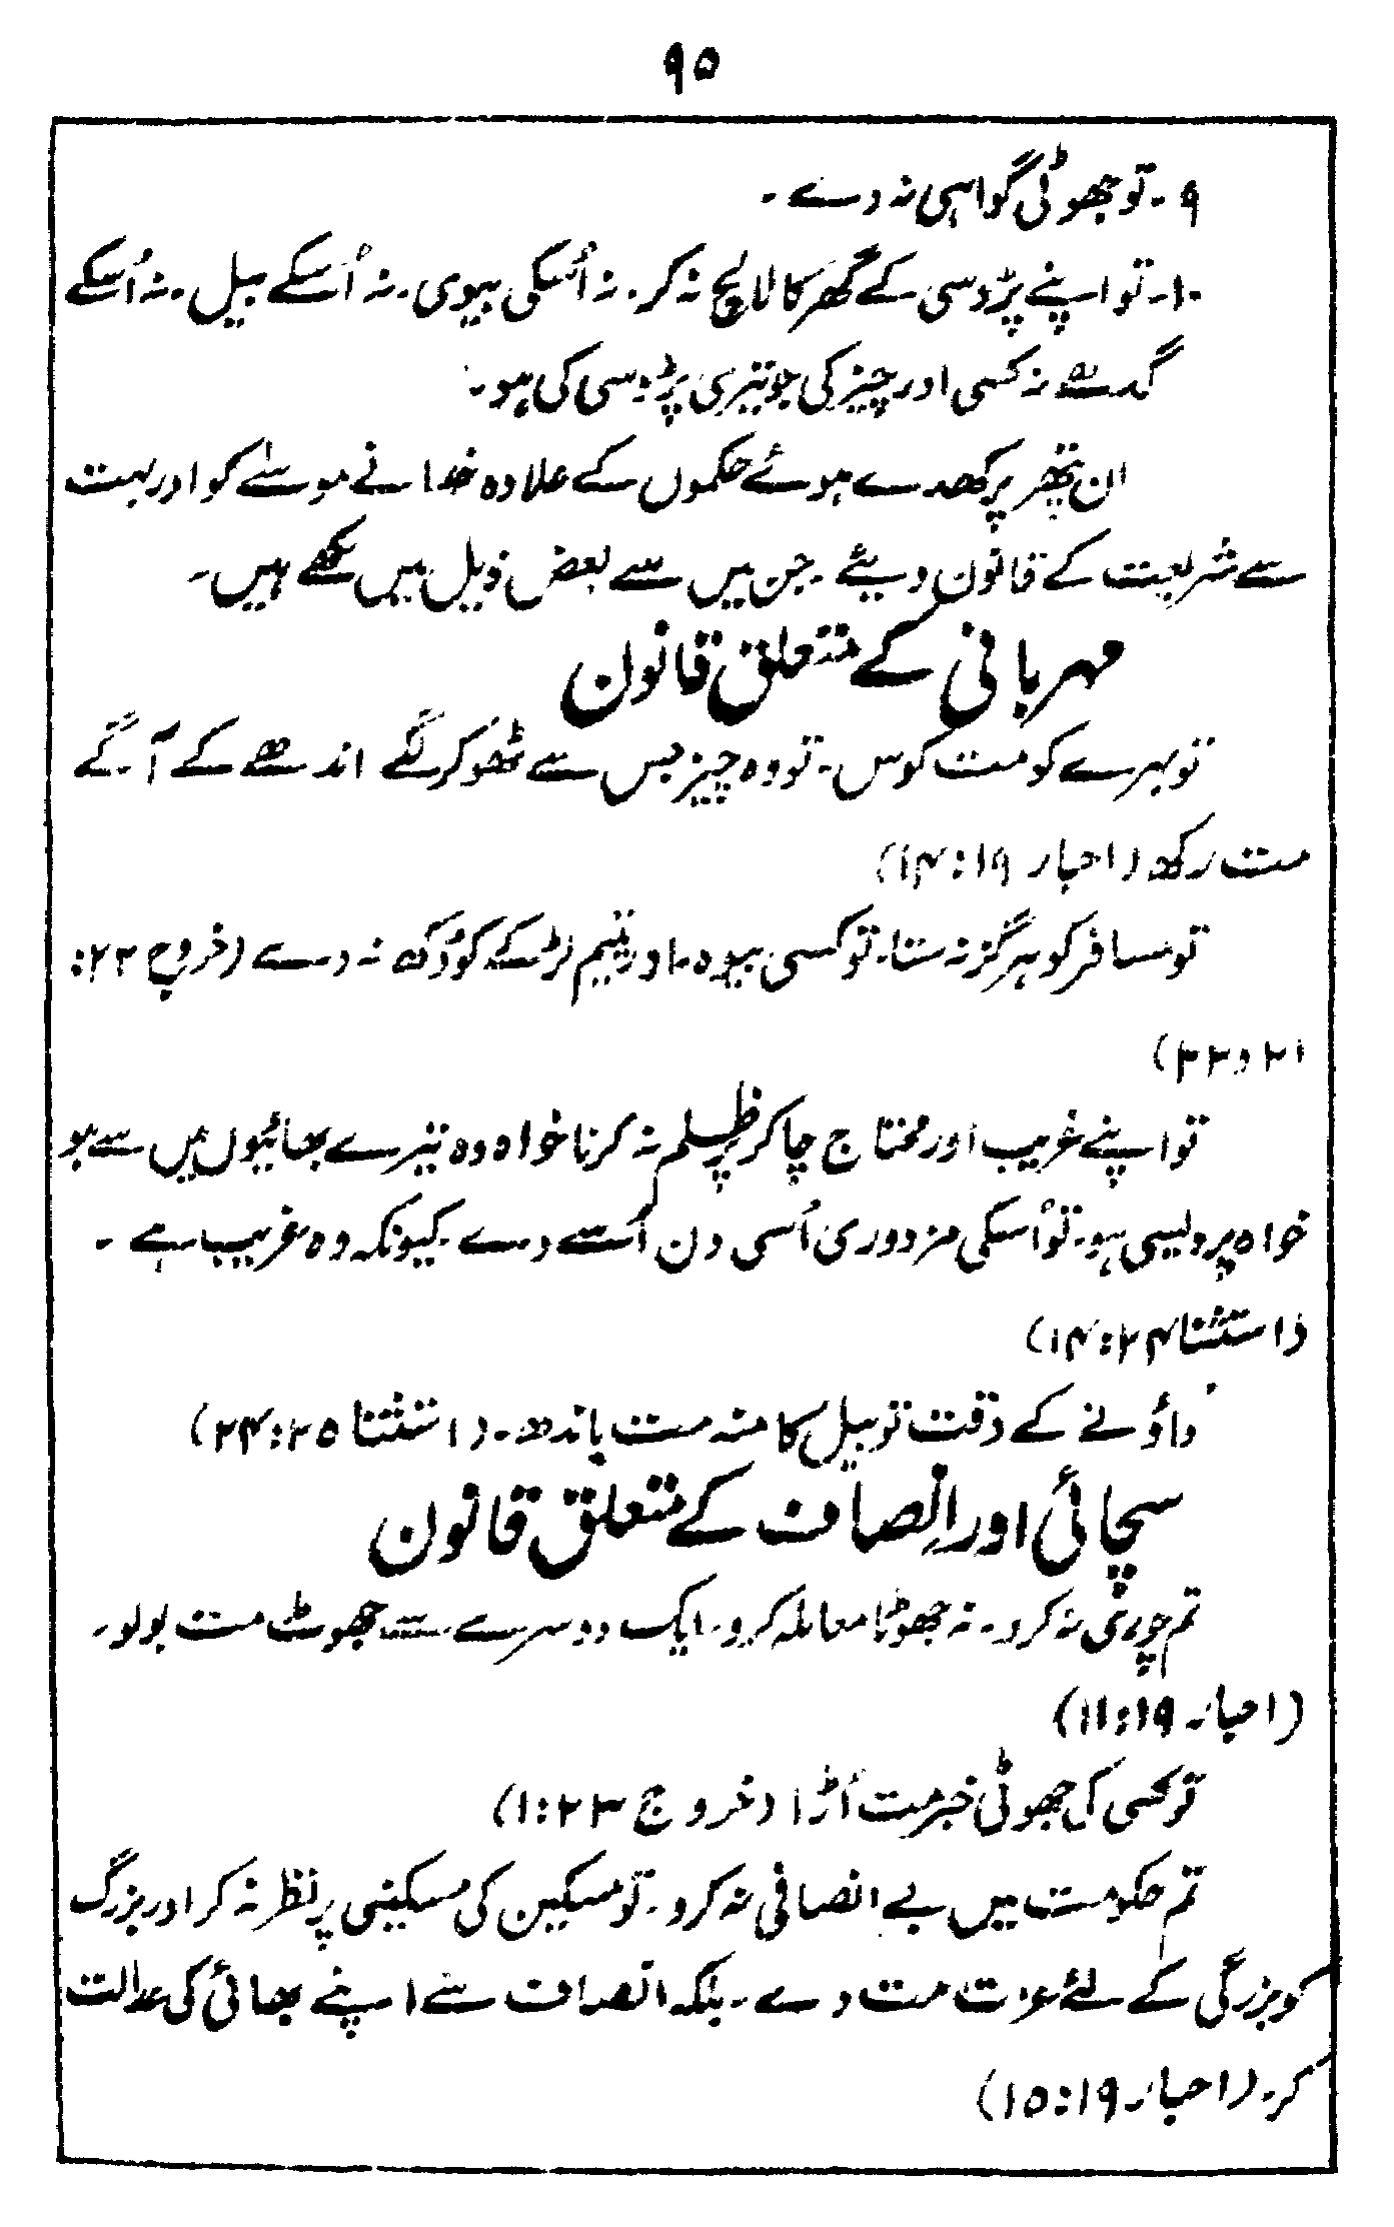 ۹۵
۹۔ تو جھوٹی گواہی نہ دے۔
۱۰۔ تو اپنے پڑوسی کے گھر کا لالچ نہ کر۔ نہ اُسکی بیوی۔ نہ اُسکے بیل۔ نہ اُسکے
گدھے نہ کسی اور چیز کی جو تیری پڑوسی کی ہو۔
ان پتھر پر کھدے ہوئے حکموں کے علاوہ خدا نے موسےٰ کو اور بہت
سے شریعت کے قانون دیئے۔ جن میں سے بعض ذیل میں لکھے ہیں۔
مہربانی کے متعلق قانون
تو بہرے کو مت کوس۔ تو وہ چیز جس سے ٹھوکر لگے اندھے کے آگے
مت رکھ (احبار ۱۹:۱۴)
تو مسافر کو ہرگز نہ ستا۔ تو کسی بیوہ اور یتیم لڑکے کو دُکھ نہ دے (خروج ۲۲:
۲۱ و ۲۲)
تو اپنے غریب اور محتاج چاکر پر ظلم نہ کرنا خواہ وہ تیرے بھائیوں میں سے ہو
خواہ پردیسی ہو۔ تو اُسکی مزدوری اُسی دن اُسے دے۔ کیونکہ وہ غریب ہے۔
(استثنا ۲۴:۱۴)
داؤنے کے وقت تو بیل کا منہ مت باندھ۔ (استثنا ۲۵:۲۴)
سچائی اور اِنصاف کے متعلق قانون
تم چوری نہ کرو۔ نہ جھوٹا معاملہ کرو۔ ایک دوسرے سے جھوٹ مت بولو۔
(احبار ۱۹:۱۱)
تو کسی کی جھوٹی خبر مت اُڑا (خروج ۲۳:۱)
تم حکومت میں بے انصافی نہ کرو۔ تو مسکین کی مسکینی پر نظر نہ کر اور بزرگ
کو بزرگی کے لئے عزت مت دے۔ بلکہ انصاف سے اپنے بھائی کی عدالت
کر۔ (احبار ۱۹:۱۵)